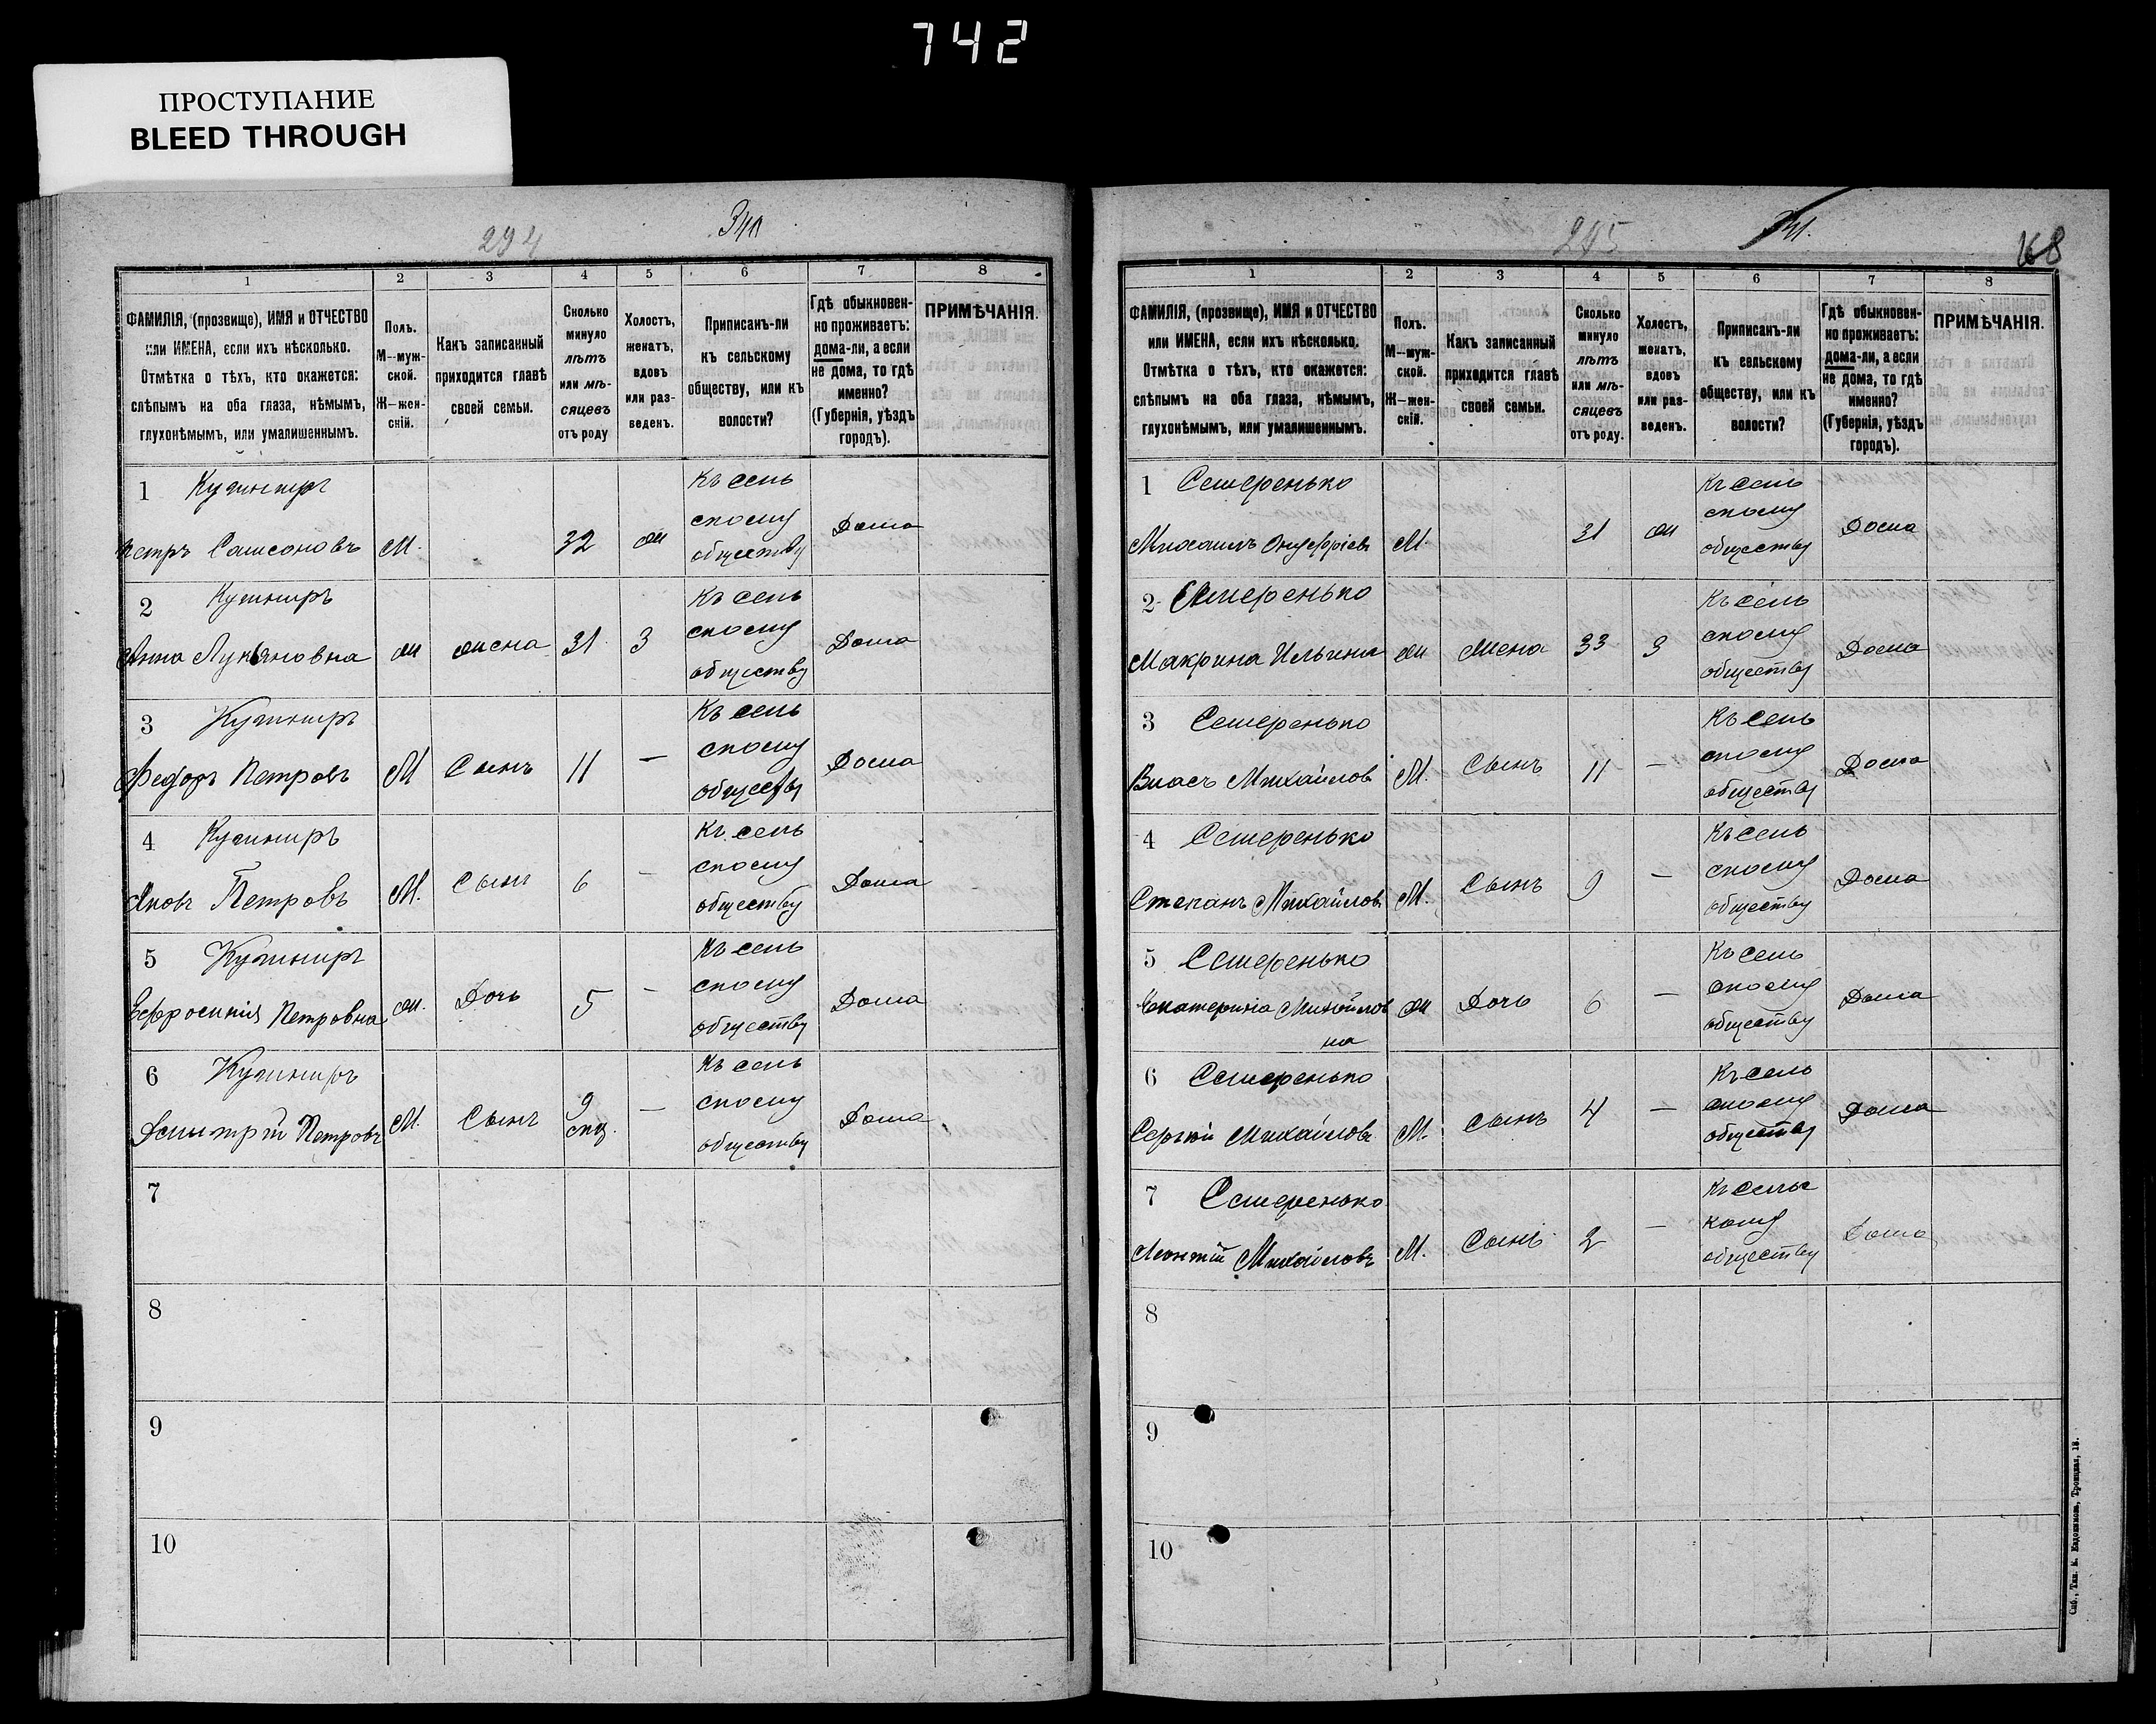 742
ПРОСТУПАНИЕ
BLEED THROUGH
294
1 2 3 4 5 6 7 8
ФАМИЛІЯ, (прозвище), ИМЯ и ОТЧЕСТВО или ИМЕНА, если ихъ нѣсколько. Отмѣтка о тѣхъ, кто окажется: слѣпымъ на оба глаза, нѣмымъ, глухонѣмымъ, или умалишеннымъ.
Полъ. М—мужской. Ж—женскій.
Какъ записанный приходится главѣ своей семьи.
Сколько минуло лѣтъ или мѣсяцевъ отъ роду
Холостъ, женатъ, вдовъ или разведенъ.
Приписанъ-ли къ сельскому обществу, или къ волости?
Гдѣ обыкновенно проживаетъ: дома-ли, а если не дома, то гдѣ именно? (Губернія, уѣздъ городъ).
ПРИМѢЧАНІЯ.
1 Кушниръ
Петръ Самсоновъ М. 32 ж Къ сель скому обществу Дома
2 Кушниръ
Анна Лукьяновна ж жена 31 З Къ сель скому обществу Дома
3 Кушниръ
Федоръ Петровъ М Сынъ 11 — Къ сель скому обществу Дома
4 Кушниръ
Яковъ Петровъ М. Сынъ 6 — Къ сель скому обществу Дома
5 Кушниръ
Ефросинія Петровна ж. Дочь 5 - Къ сель скому обществу Дома
6 Кушниръ
Дмытрій Петровъ М. Сынъ 9 — Къ сель скому обществу Дома
7
8
9
10
295
168
1 2 3 4 5 6 7 8
ФАМИЛІЯ, (прозвище), ИМЯ и ОТЧЕСТВО или ИМЕНА, если ихъ нѣсколько. Отмѣтка о тѣхъ, кто окажется: слѣпымъ на оба глаза, нѣмымъ, глухонѣмымъ, или умалишеннымъ.
Полъ. М—мужской. Ж—женскій.
Какъ записанный приходится главѣ своей семьи.
Сколько минуло лѣтъ или мѣсяцевъ отъ роду.
Холостъ, женатъ, вдовъ или разведенъ.
Приписанъ-ли къ сельскому обществу, или къ волости?
Гдѣ обыкновенно проживаетъ: дома-ли, а если не дома, то гдѣ именно? (Губернія, уѣздъ городъ).
ПРИМѢЧАНІЯ.
1 Семеренько
Михаилъ Онуфріевъ М 31 ж Къ сель скому обществу Дома
2 Семеренько
Макрина Ильина ж Жена 33 З Къ сель скому обществу Дома
3 Семеренько
Власъ Михайлов М. Сынъ 11 — Къ сель скому обществу Дома
4 Семеренько
Степанъ Михайловъ М. Сынъ 9 — Къ сель скому обществу Дома
5 Семеренько
Екатерина Михайлов на ж Дочь 6 — Къ сель скому обществу Дома
6 Семеренько
Сергій Михайловъ М. Сынъ 4 — Къ сель скому обществу Дома
7 Семеренько
Леонтій Михайловъ М. Сынъ 2 — Къ сельс кому обществу Дома
8
9
10